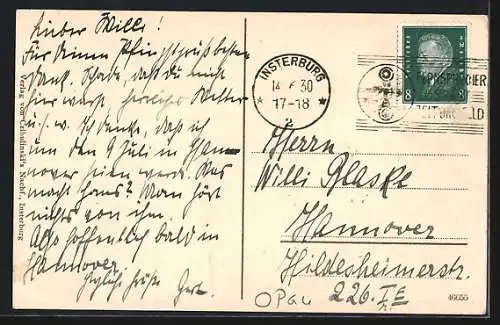 Lieber Willi!
Für Deinen Pfingstgruß besten
Dank. Schade, daß du nicht
hier warst, herrliches Wetter
u.s.w. Ich denke, daß ich
um den 9 Juli in Han-
nover sein werde. Was
macht Hans? Man hört
nichts von ihm.
Also hoffentlich bald in
Hannover
Grüße Gert.
Verlag von Nachf., Insterburg
INSTERBURG
14 6 30
17-18
2
FERNSPRECHER
8 8
Herrn
Willi Blaske
Hannover
Hildesheimerstr.
226 I E
OPau
46655